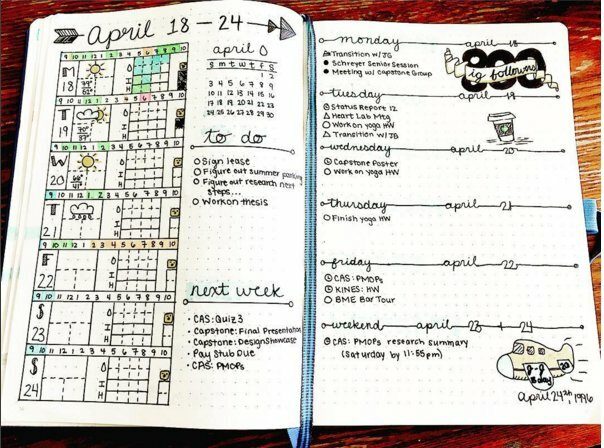 April 18 - 24
9 10 11 12 1 2 3 4 5 6 7 8 9 10
M
18
T
19
W
20
T
21
F
22
S
23
S
24
april
s m t w t f s
1 2
3 4 5 6 7 8 9
10 11 12 13 14 15 16
17 18 19 20 21 22 23
24 25 26 27 28 29 30
to do
Sign lease
Figure out summer parking
Figure out research next
steps...
Work on thesis
next week
CAS: Quiz 3
Capstone: Final Presentation
Capstone: Design Showcase
Pay Stub Due
CAS: PMOPs
monday april 18
Transition w/JG
Schreyer Senior Session
Meeting w/ Capstone Group
800
ig followers
tuesday april 19
Status Report 12
Heart Lab Mtg
Work on yoga HW
Transition w/JG
wednesday april 20
Capstone Poster
Work on yoga HW
thursday april 21
Finish yoga HW
friday april 22
CAS: PMOPs
KINES: HW
BME Bar Tour
weekend april 23 + 24
CAS: PMOPs research summary
(Saturday by 11:55pm)
B day
20
April 24th, 1996